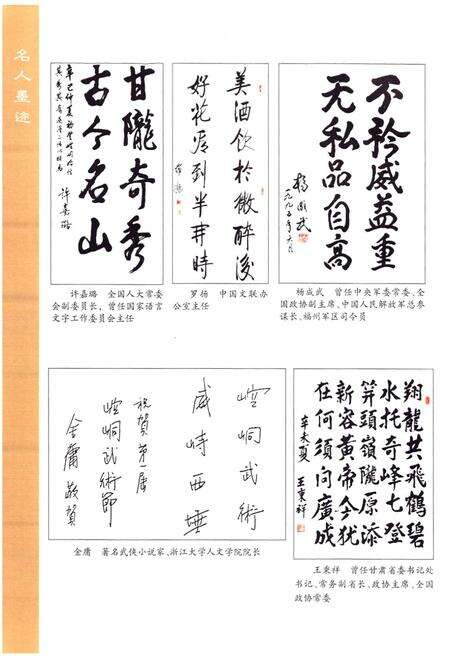 名人墨迹
甘隴奇秀
古今名山
許嘉璐
许嘉璐　全国人大常委
会副委员长，曾任国家语言
文字工作委员会主任
美酒饮於微醉後
好花看到半开時
罗扬　中国文联办
公室主任
不矜威益重
无私品自高
杨成武
一九九五年六月
杨成武　曾任中央军委常委、全
国政协副主席、中国人民解放军总参
谋长、福州军区司令员
崆峒武術
威峙西陲
祝贺第一届
崆峒武術節
金庸敬賀
金庸　著名武侠小说家、浙江大学人文学院院长
翔龍共飛鶴碧
水托奇峰七登
笄頭嶺隴原添
新容黄帝今犹
在何須问廣成
辛未夏
王秉祥
王秉祥　曾任甘肃省委书记处
书记、常务副省长、政协主席、全国
政协常委